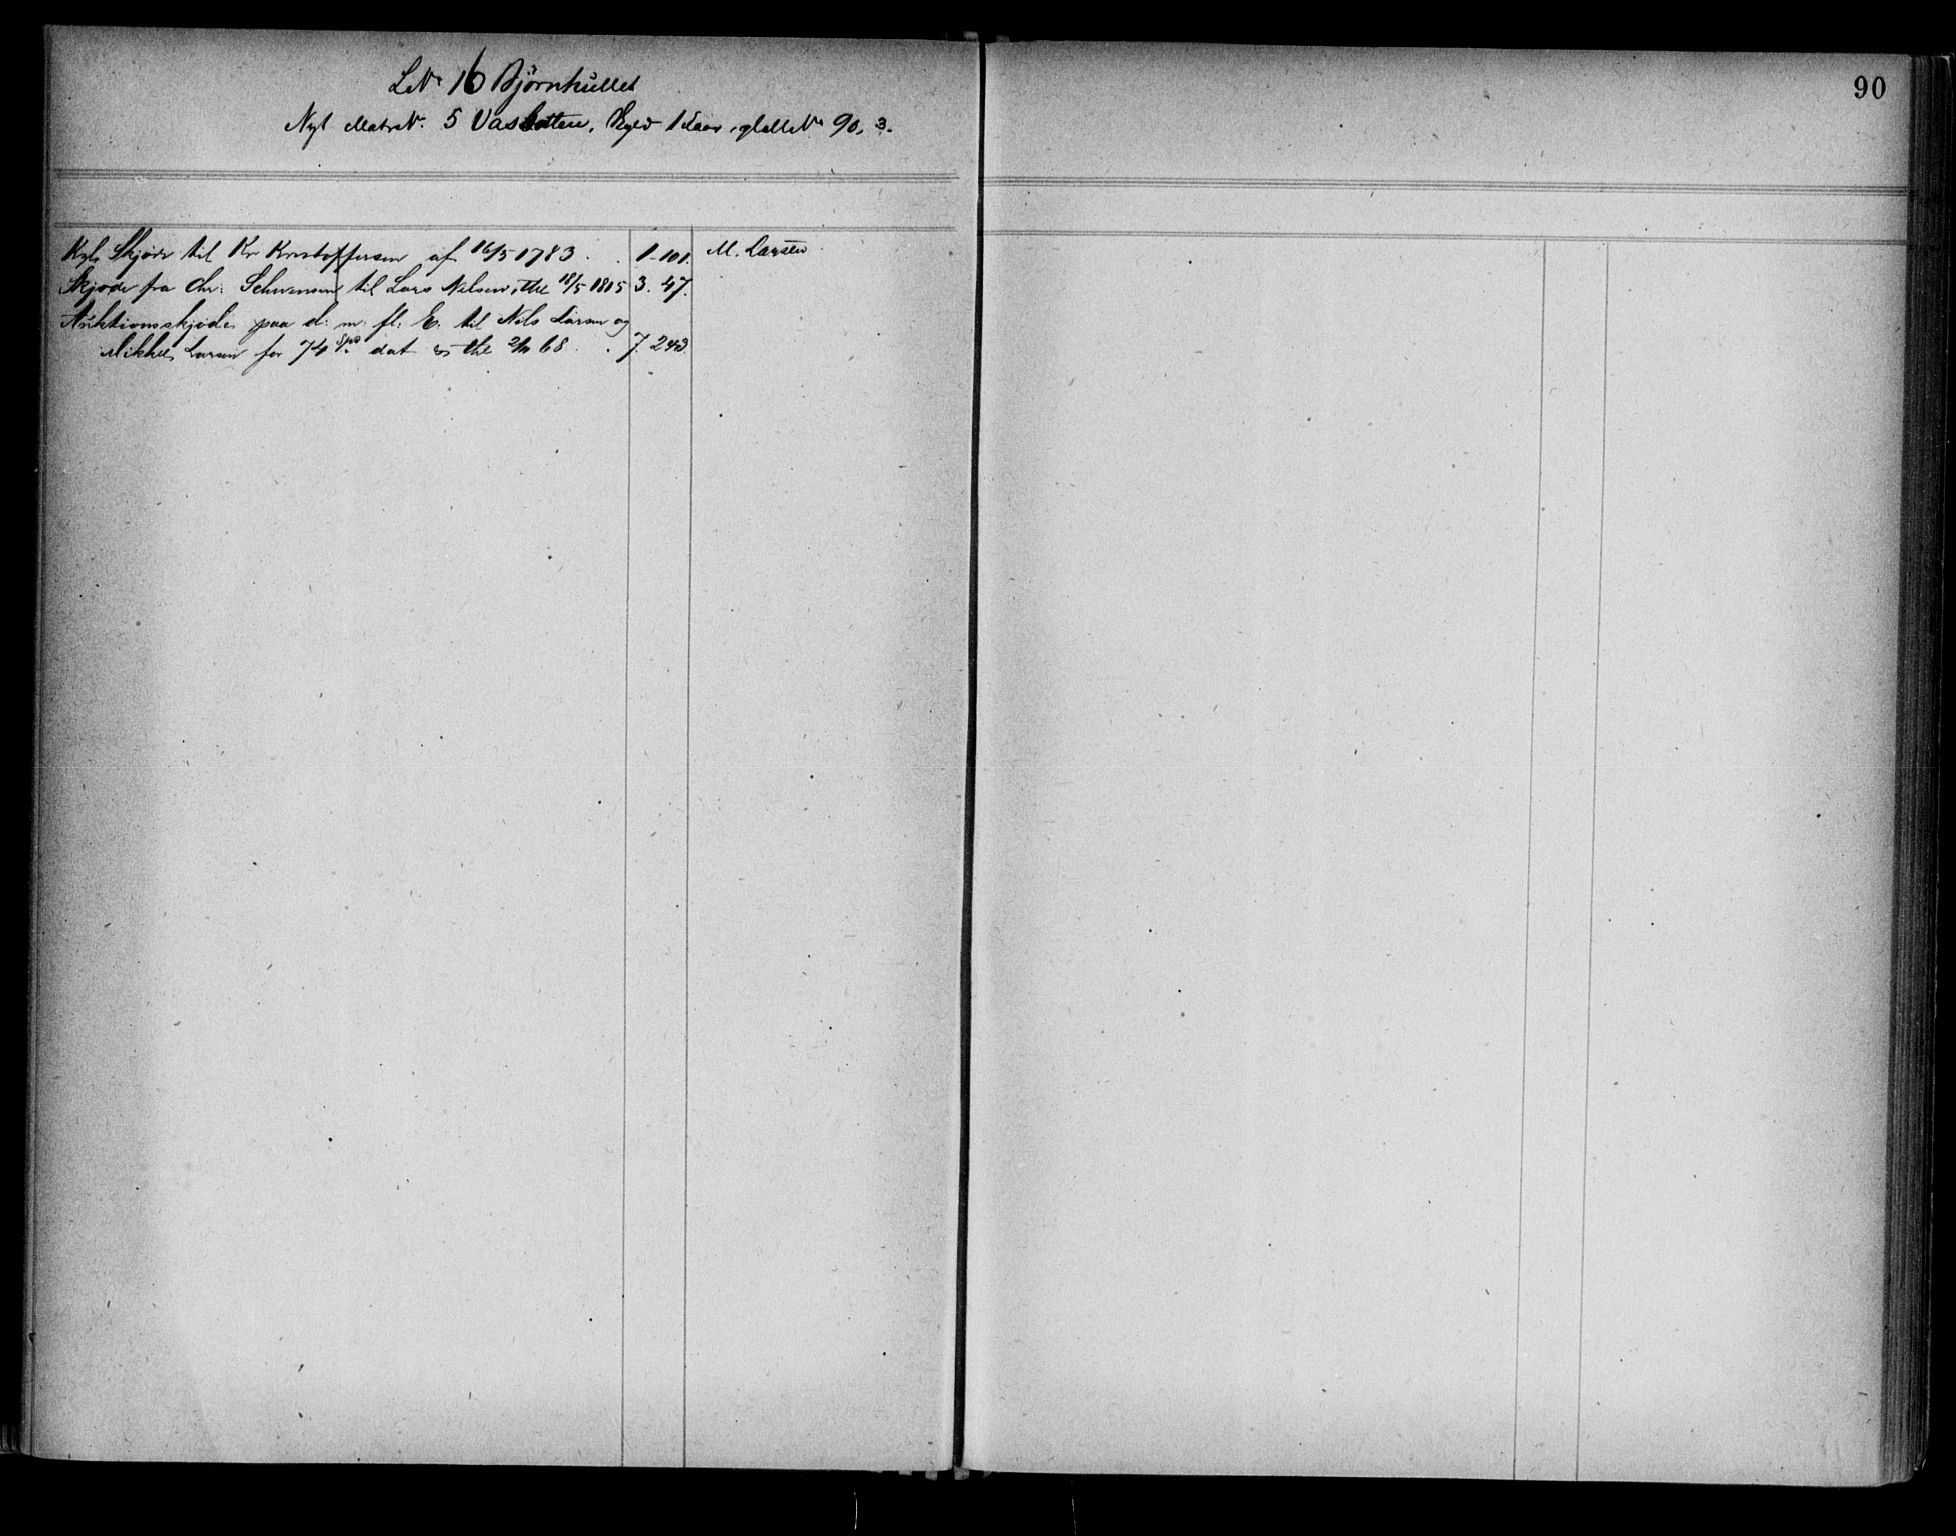 LNo 16 Björnhullet
Nyt MatrN. 5 Vasbotten, Skyld 1 Daar, glMNo 90, 3.
90
Kgl. Skjøde til Kr Kristoffersen af 16/5 1783. 1-101. M. Larsen
Skjøde fra Chr: Schwensen til Lars Nilsen, thl 18/5 1815 3. 47.
Auktionsskjøde paa d: m: fl: E: til Nils Larsen og
Mikkel Larsen for 74 Spd dat & thl 68. 7. 243.